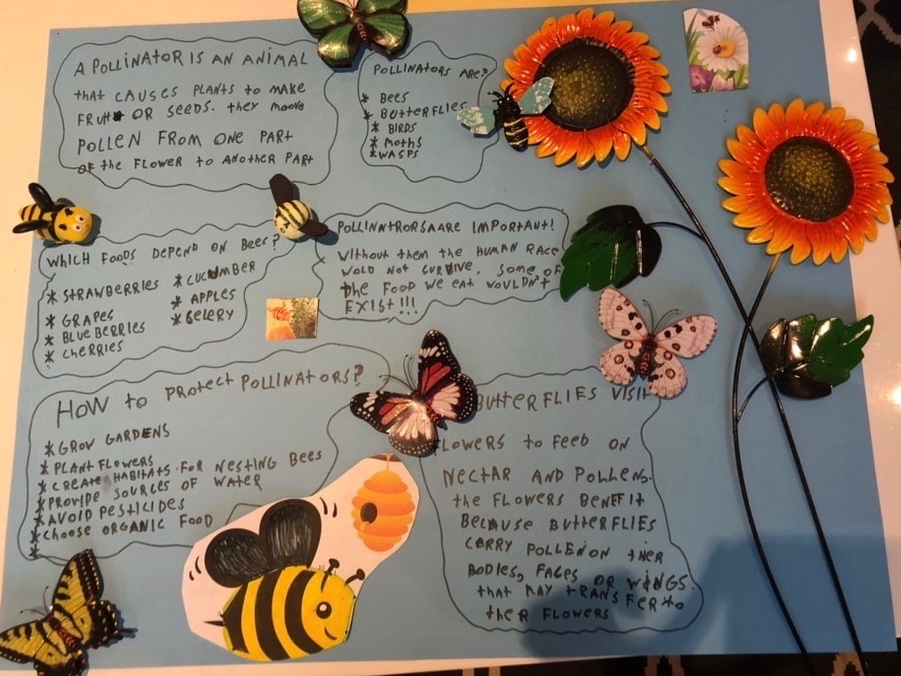 A POLLINATOR IS AN ANIMAL
that CAUSES PLANTS to MAKE
FRUIT OR SEEDS. they MOOVE
POLLEN FROM ONE PART
OF the FLOWER to ANOTHER PART
POLLINATORS ARE?
* BEES
* BUTTERFLIES
* BIRDS
* Moths
* WASPS
WHICH FOODS DEPEND ON BEES?
* STRAWBERRIES
* GRAPES
* BLUEBERRIES
* CHERRIES
* CUCUMBER
* APPLES
* CELERY
POLLINATRORSAARE IMPORTANT!
Without them the HUMAN RACE
WOLD NOT SURVIVE. SOME OF
the FOOD WE EAT WOULDN'T
EXIST!!!
HOW to PROTECT POLLINATORS?
* GROW GARDENS
* PLANT FLOWERS
* CREATE HABITATS FOR NESTING BEES
* PROVIDE SOURCES OF WATER
* AVOID PESTICIDES
* CHOOSE ORGANIC FOOD
*
BUTTERFLIES VISIT
FLOWERS to FEED ON
NECTAR AND POLLENS.
the FLOWERS BENEFIT
BECAUSE BUTTERFLIES
CARRY POLLEN ON THER
BODIES, FACES OR WINGS
that MAY TRANSFER to
theR FLOWERS